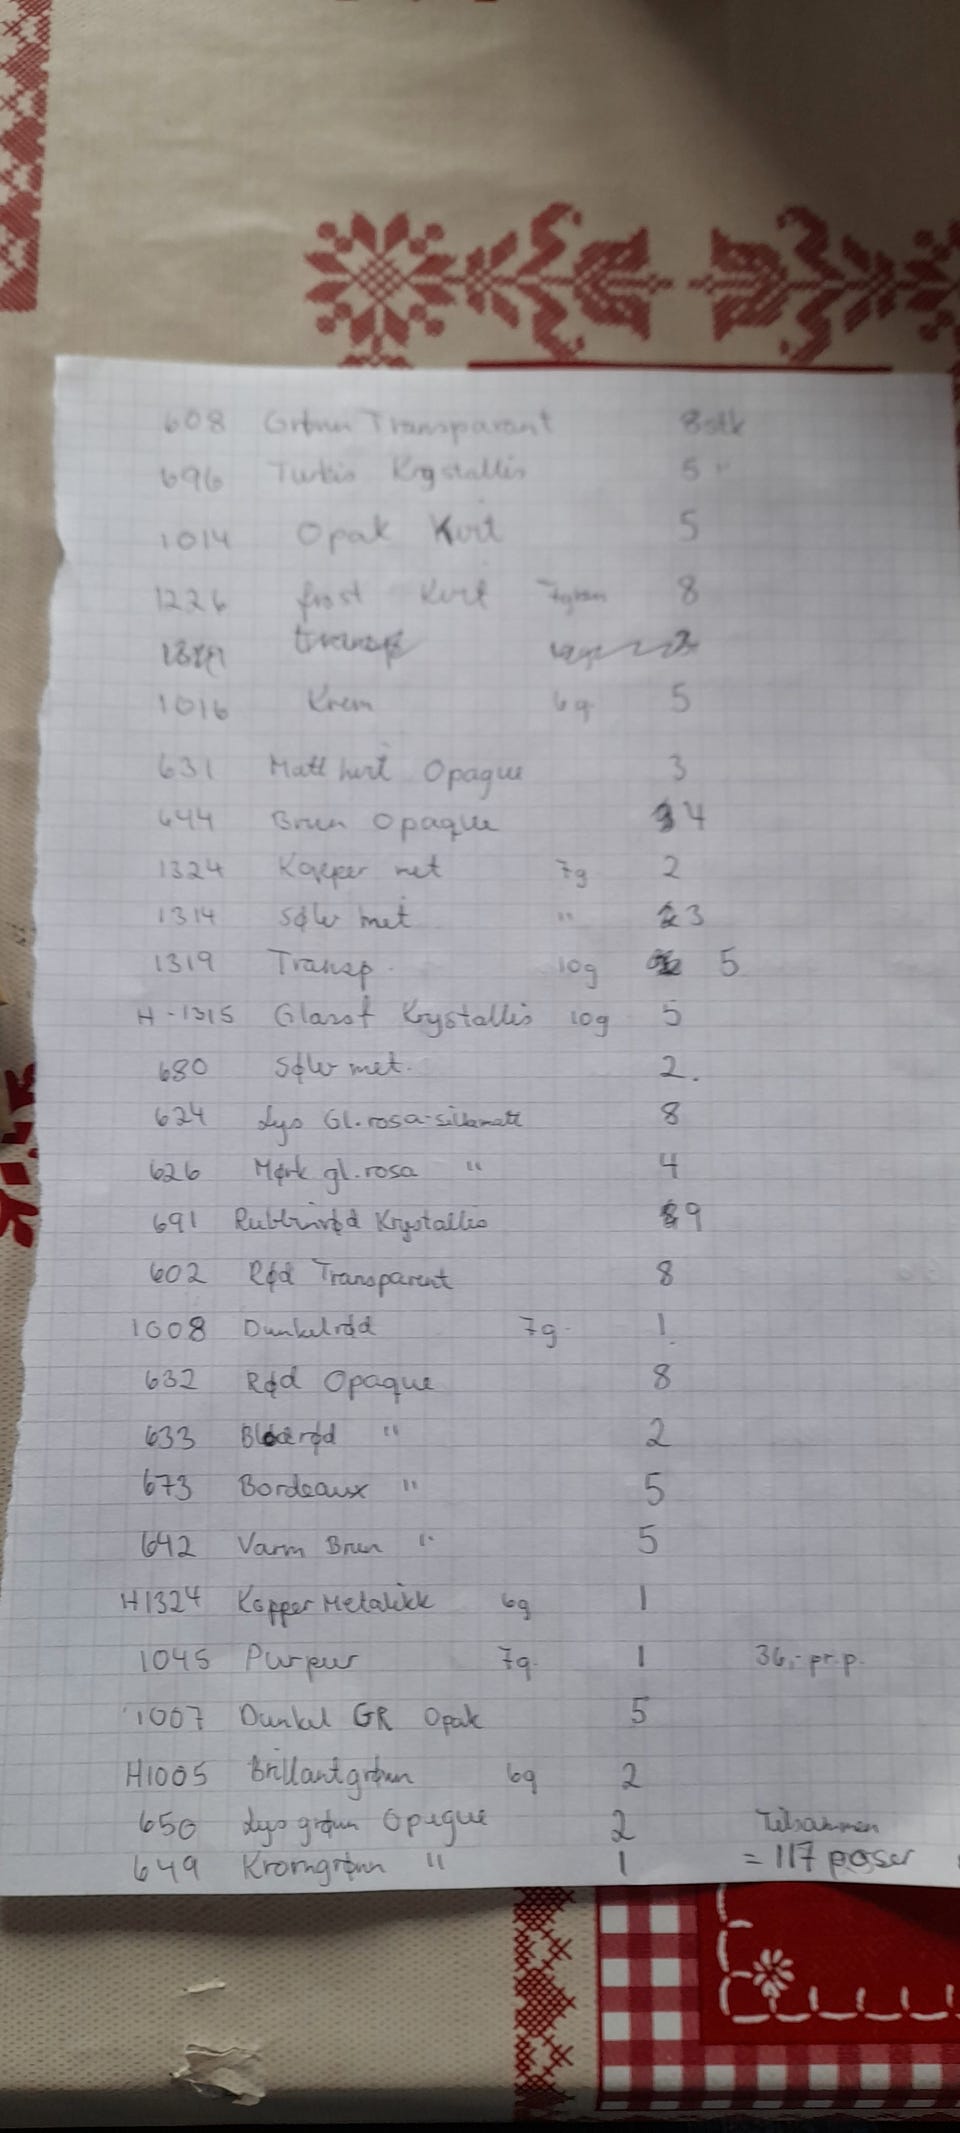 608 Grønn Transparant 8 stk
696 Turkis Krystallis 5 "
1014 Opak Kvit 5
1226 frost Kvit 7gram 8
transp
1016 Krem 6g 5
631 Matt hvit Opaque 3
644 Brun Opaque 4
1324 Kopper met 7g 2
1314 Sølv met " 3
1319 Transp. 10g 5
H-1315 Glassf Krystallis 10g 5
680 Sølv met. 2.
624 Lys Gl.rosa-silkematt 8
626 Mørk gl.rosa " 4
691 Rubbinrød Krystallis 9
602 Rød Transparent 8
1008 Dunkelrød 7g. 1
632 Rød Opaque 8
633 Blodrød " 2
673 Bordeaux " 5
642 Varm Brun " 5
H1324 Kopper Metalikk 6g 1
1045 Purpur 7g. 1 36,- pr.p.
1007 Dunkel GR Opak 5
H1005 Brillantgrønn 6g 2
650 Lys grønn Opaque 2 Tilsammen
649 Kromgrønn " 1 = 117 poser